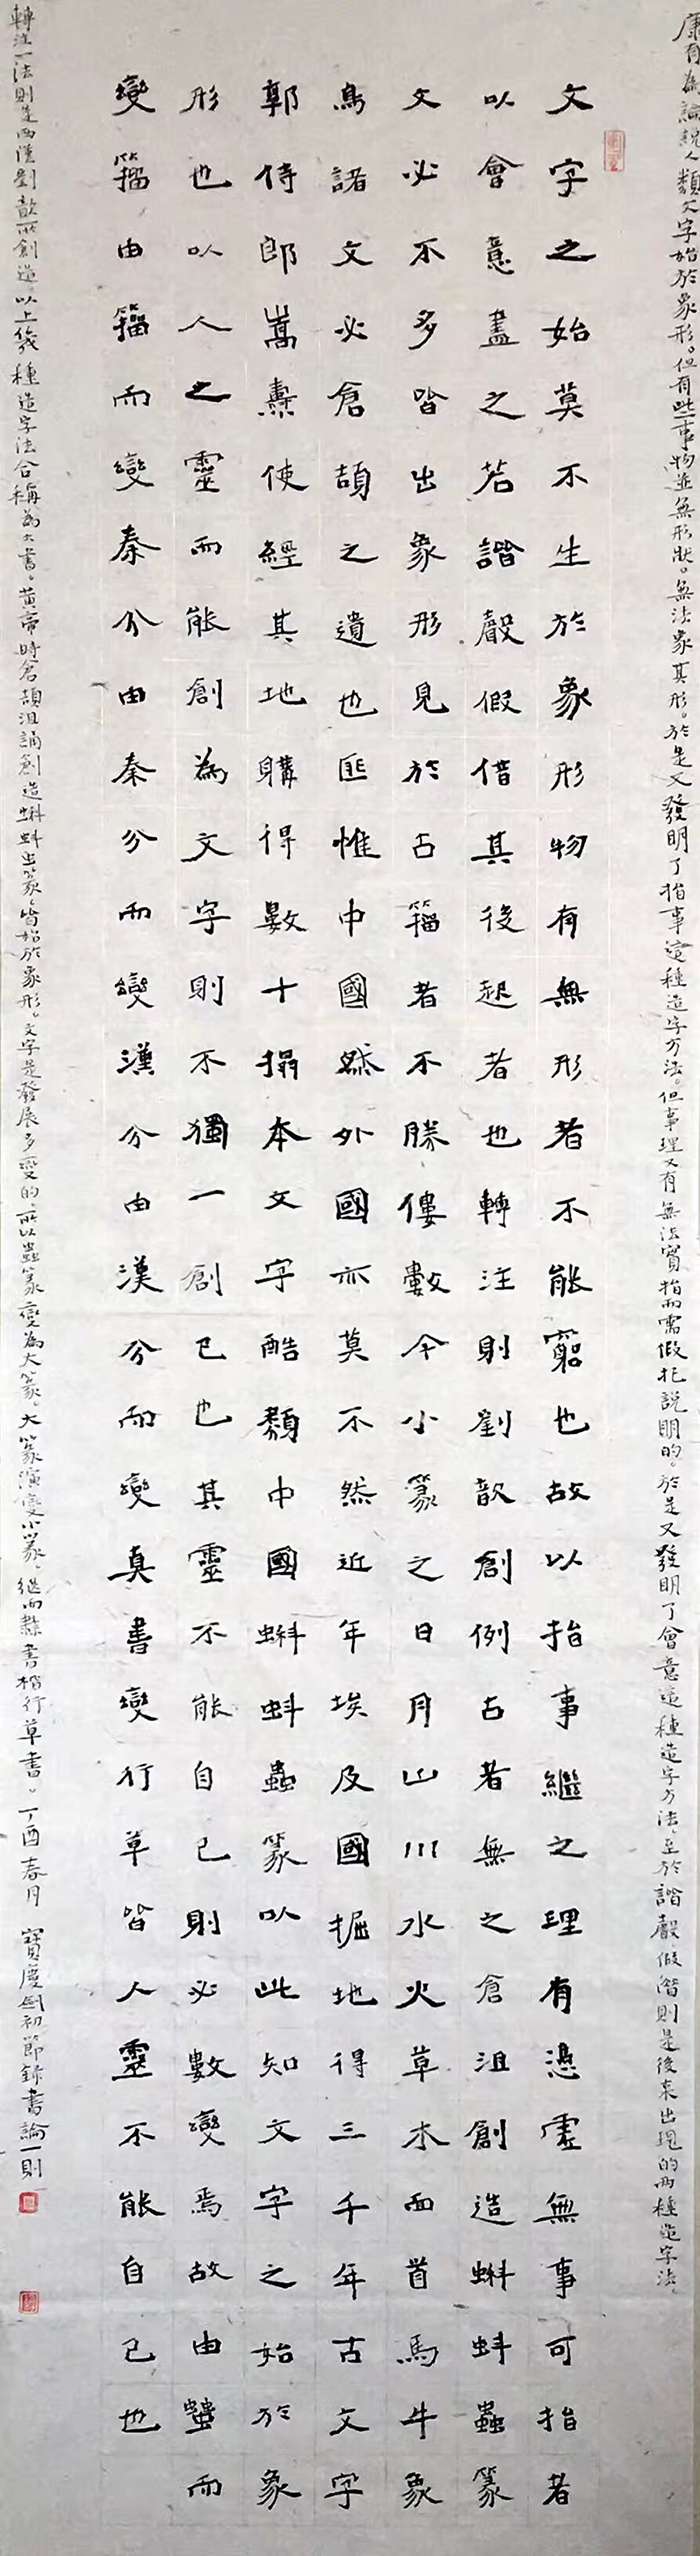 康有為論說人類文字始於象形。但有些事物並無形狀。無法象其形。於是又發明了指事這種造字方法。但事理又有無法實指而需假托說明的。於是又發明了會意這種造字方法。至於諧聲、假借則是後來出現的兩種造字法。
文字之始莫不生於象形物有無形者不能窮也故以指事繼之理有憑虛無事可指者
以會意盡之若諧聲假借其後起者也轉注則劉歆創例古者無之倉沮創造蝌蚪蟲篆
文必不多皆出象形見於古籀者不勝僂數今小篆之日月山川水火草木面首馬牛象
鳥諸文必倉頡之遺也匪惟中國然外國亦莫不然近年埃及國掘地得三千年古文字
郭侍郎嵩燾使經其地購得數十搨本文字酷類中國蝌蚪蟲篆以此知文字之始於象
形也以人之靈而能創為文字則不獨一創已也其靈不能自已則必數變焉故由蟲而
變籀由籀而變秦分由秦分而變漢分由漢分而變真書變行草皆人靈不能自已也
轉注一法則是西漢劉歆所創造。以上幾種造字法合稱為六書。黃帝時倉頡沮誦創造蝌蚪虫篆、皆始於象形。文字是發展多變的、所以蟲篆變為大篆。大篆演變小篆。繼而隸書楷行草書。丁酉春月 寶慶劍初節錄書論一則